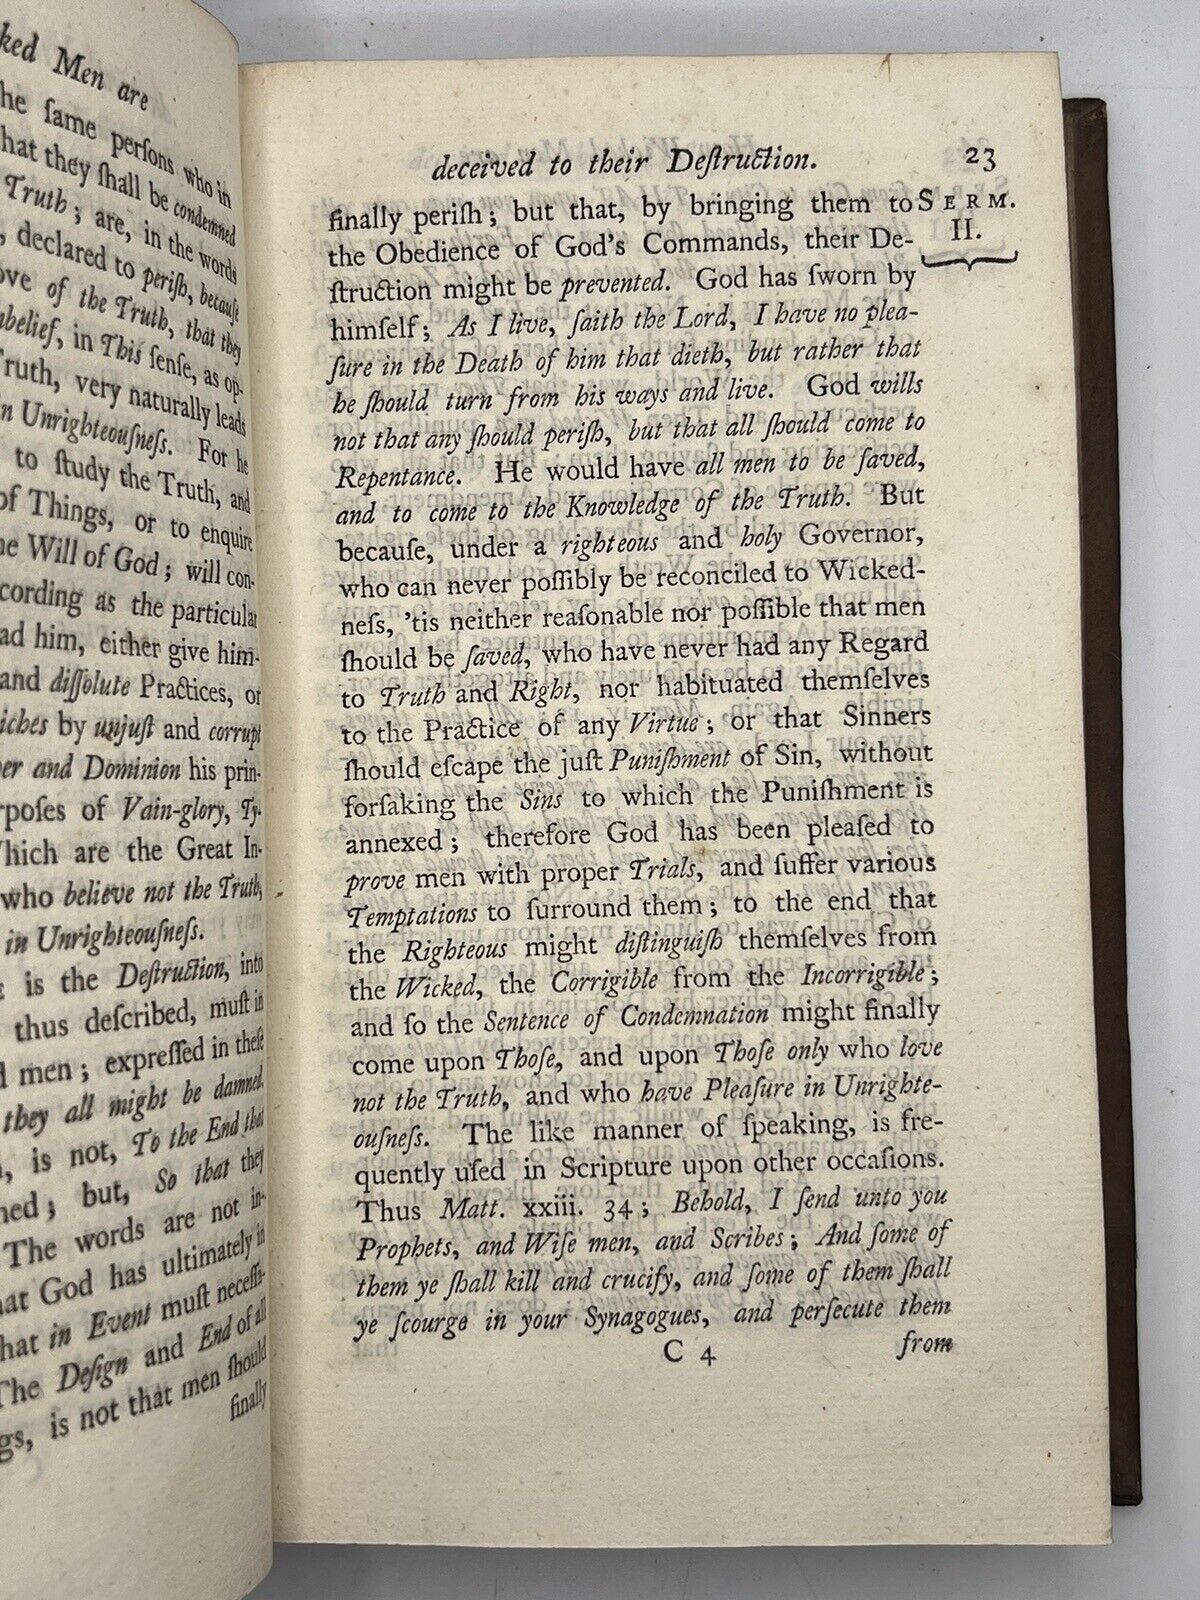 ked Men are
he ſame perſons who in
hat they ſhall be condemned
Truth; are, in the words
, declared to periſh, becauſe
ove of the Truth, that they
nbelief, in This ſenſe, as op-
Truth, very naturally leads
in Unrighteouſneſs. For he
to ſtudy the Truth, and
of Things, or to enquire
he Will of God; will con-
cording as the particular
ad him, either give him-
and diſſolute Practices, or
iches by unjuſt and corrupt
er and Dominion his prin-
rpoſes of Vain-glory, Ty-
Which are the Great In-
who believe not the Truth,
in Unrighteouſneſs.
is the Deſtruction, into
thus deſcribed, muſt in
d men; expreſſed in theſe
they all might be damned.
, is not, To the End that
ned; but, So that they
The words are not in-
hat God has ultimately in
that in Event muſt neceſſa-
The Deſign and End of all
gs, is not that men ſhould
finally
deceived to their Deſtruction. 23
finally periſh; but that, by bringing them to SERM.
the Obedience of God's Commands, their De- II.
ſtruction might be prevented. God has ſworn by
himſelf; As I live, ſaith the Lord, I have no plea-
ſure in the Death of him that dieth, but rather that
he ſhould turn from his ways and live. God wills
not that any ſhould periſh, but that all ſhould come to
Repentance. He would have all men to be ſaved,
and to come to the Knowledge of the Truth. But
becauſe, under a righteous and holy Governor,
who can never poſſibly be reconciled to Wicked-
neſs, 'tis neither reaſonable nor poſſible that men
ſhould be ſaved, who have never had any Regard
to Truth and Right, nor habituated themſelves
to the Practice of any Virtue; or that Sinners
ſhould eſcape the juſt Puniſhment of Sin, without
forſaking the Sins to which the Puniſhment is
annexed; therefore God has been pleaſed to
prove men with proper Trials, and ſuffer various
Temptations to ſurround them; to the end that
the Righteous might diſtinguiſh themſelves from
the Wicked, the Corrigible from the Incorrigible;
and ſo the Sentence of Condemnation might finally
come upon Thoſe, and upon Thoſe only who love
not the Truth, and who have Pleaſure in Unrighte-
ouſneſs. The like manner of ſpeaking, is fre-
quently uſed in Scripture upon other occaſions.
Thus Matt. xxiii. 34; Behold, I ſend unto you
Prophets, and Wiſe men, and Scribes; And ſome of
them ye ſhall kill and crucify, and ſome of them ſhall
ye ſcourge in your Synagogues, and perſecute them
C 4 from